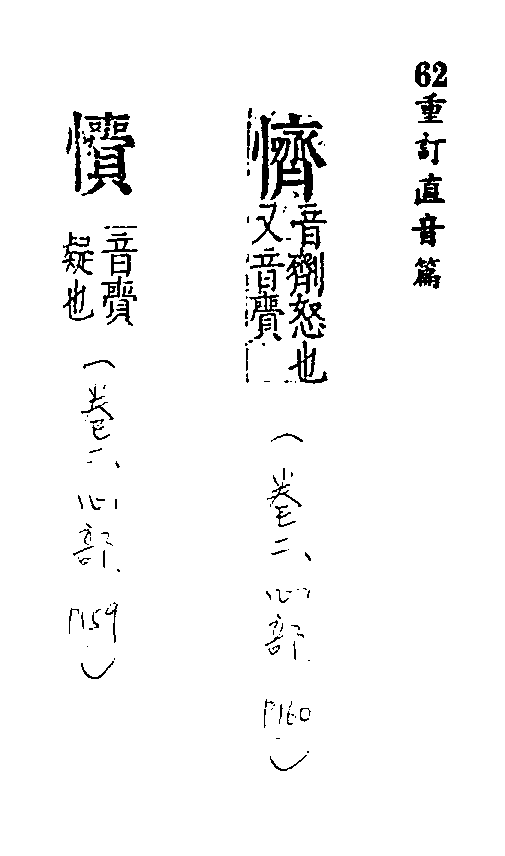 62重訂直音篇
懠
音劑怒也
又音齎
（卷二、心部、P160）
懠
音齎
疑也
（卷二、心部、P159）